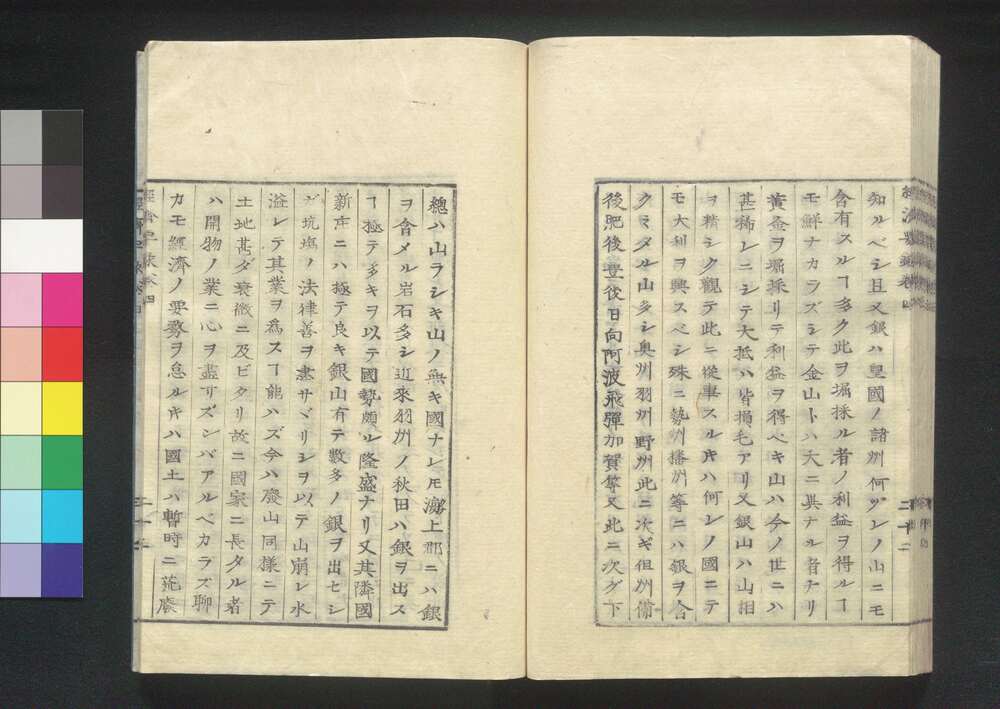 知ルベシ且又銀ハ皇國ノ諸州何ヅレノ山ニモ
含有スルヿ多ク此ヲ堀採ル者ノ利益ヲ得ルヿ
モ鮮ナカラズシテ金山トハ大ニ異ナル者ナリ
黄金ヲ堀採リテ利益ヲ得ベキ山ハ今ノ世ニハ
甚稀レニシテ大抵ハ皆損毛アリ又銀山ハ山相
ヲ精シク觀テ此ニ從事スルキハ何レノ國ニテ
モ大利ヲ興スベシ殊ニ勢州播州等ニハ銀ヲ含
クミタル山多シ奥州羽州野州此ニ次ギ但州備
後肥後豊後日向阿波飛彈加賀等又此ニ次グ下
二十二
總ハ山ラシキ山ノ無キ國ナレ𪜈海上郡ニハ銀
ヲ含メル岩石多シ近來羽州ノ秋田ハ銀ヲ出ス
ヿ極テ多キヲ以テ國勢頗ル隆盛ナリ又其隣國
新庄ニハ極テ良キ銀山有テ數多ノ銀ヲ出セシ
ガ坑塲ノ法律善ヲ盡サヾリシヲ以テ山崩レ水
溢レテ其業ヲ爲スヿ能ハズ今ハ廢山同様ニテ
土地甚ダ衰微ニ及ビタリ故ニ國家ニ長タル者
ハ開物ノ業ニ心ヲ盡サズンバアルベカラズ聊
カモ經濟ノ要務ヲ怠ルキハ國土ハ暫時ニ荒廢